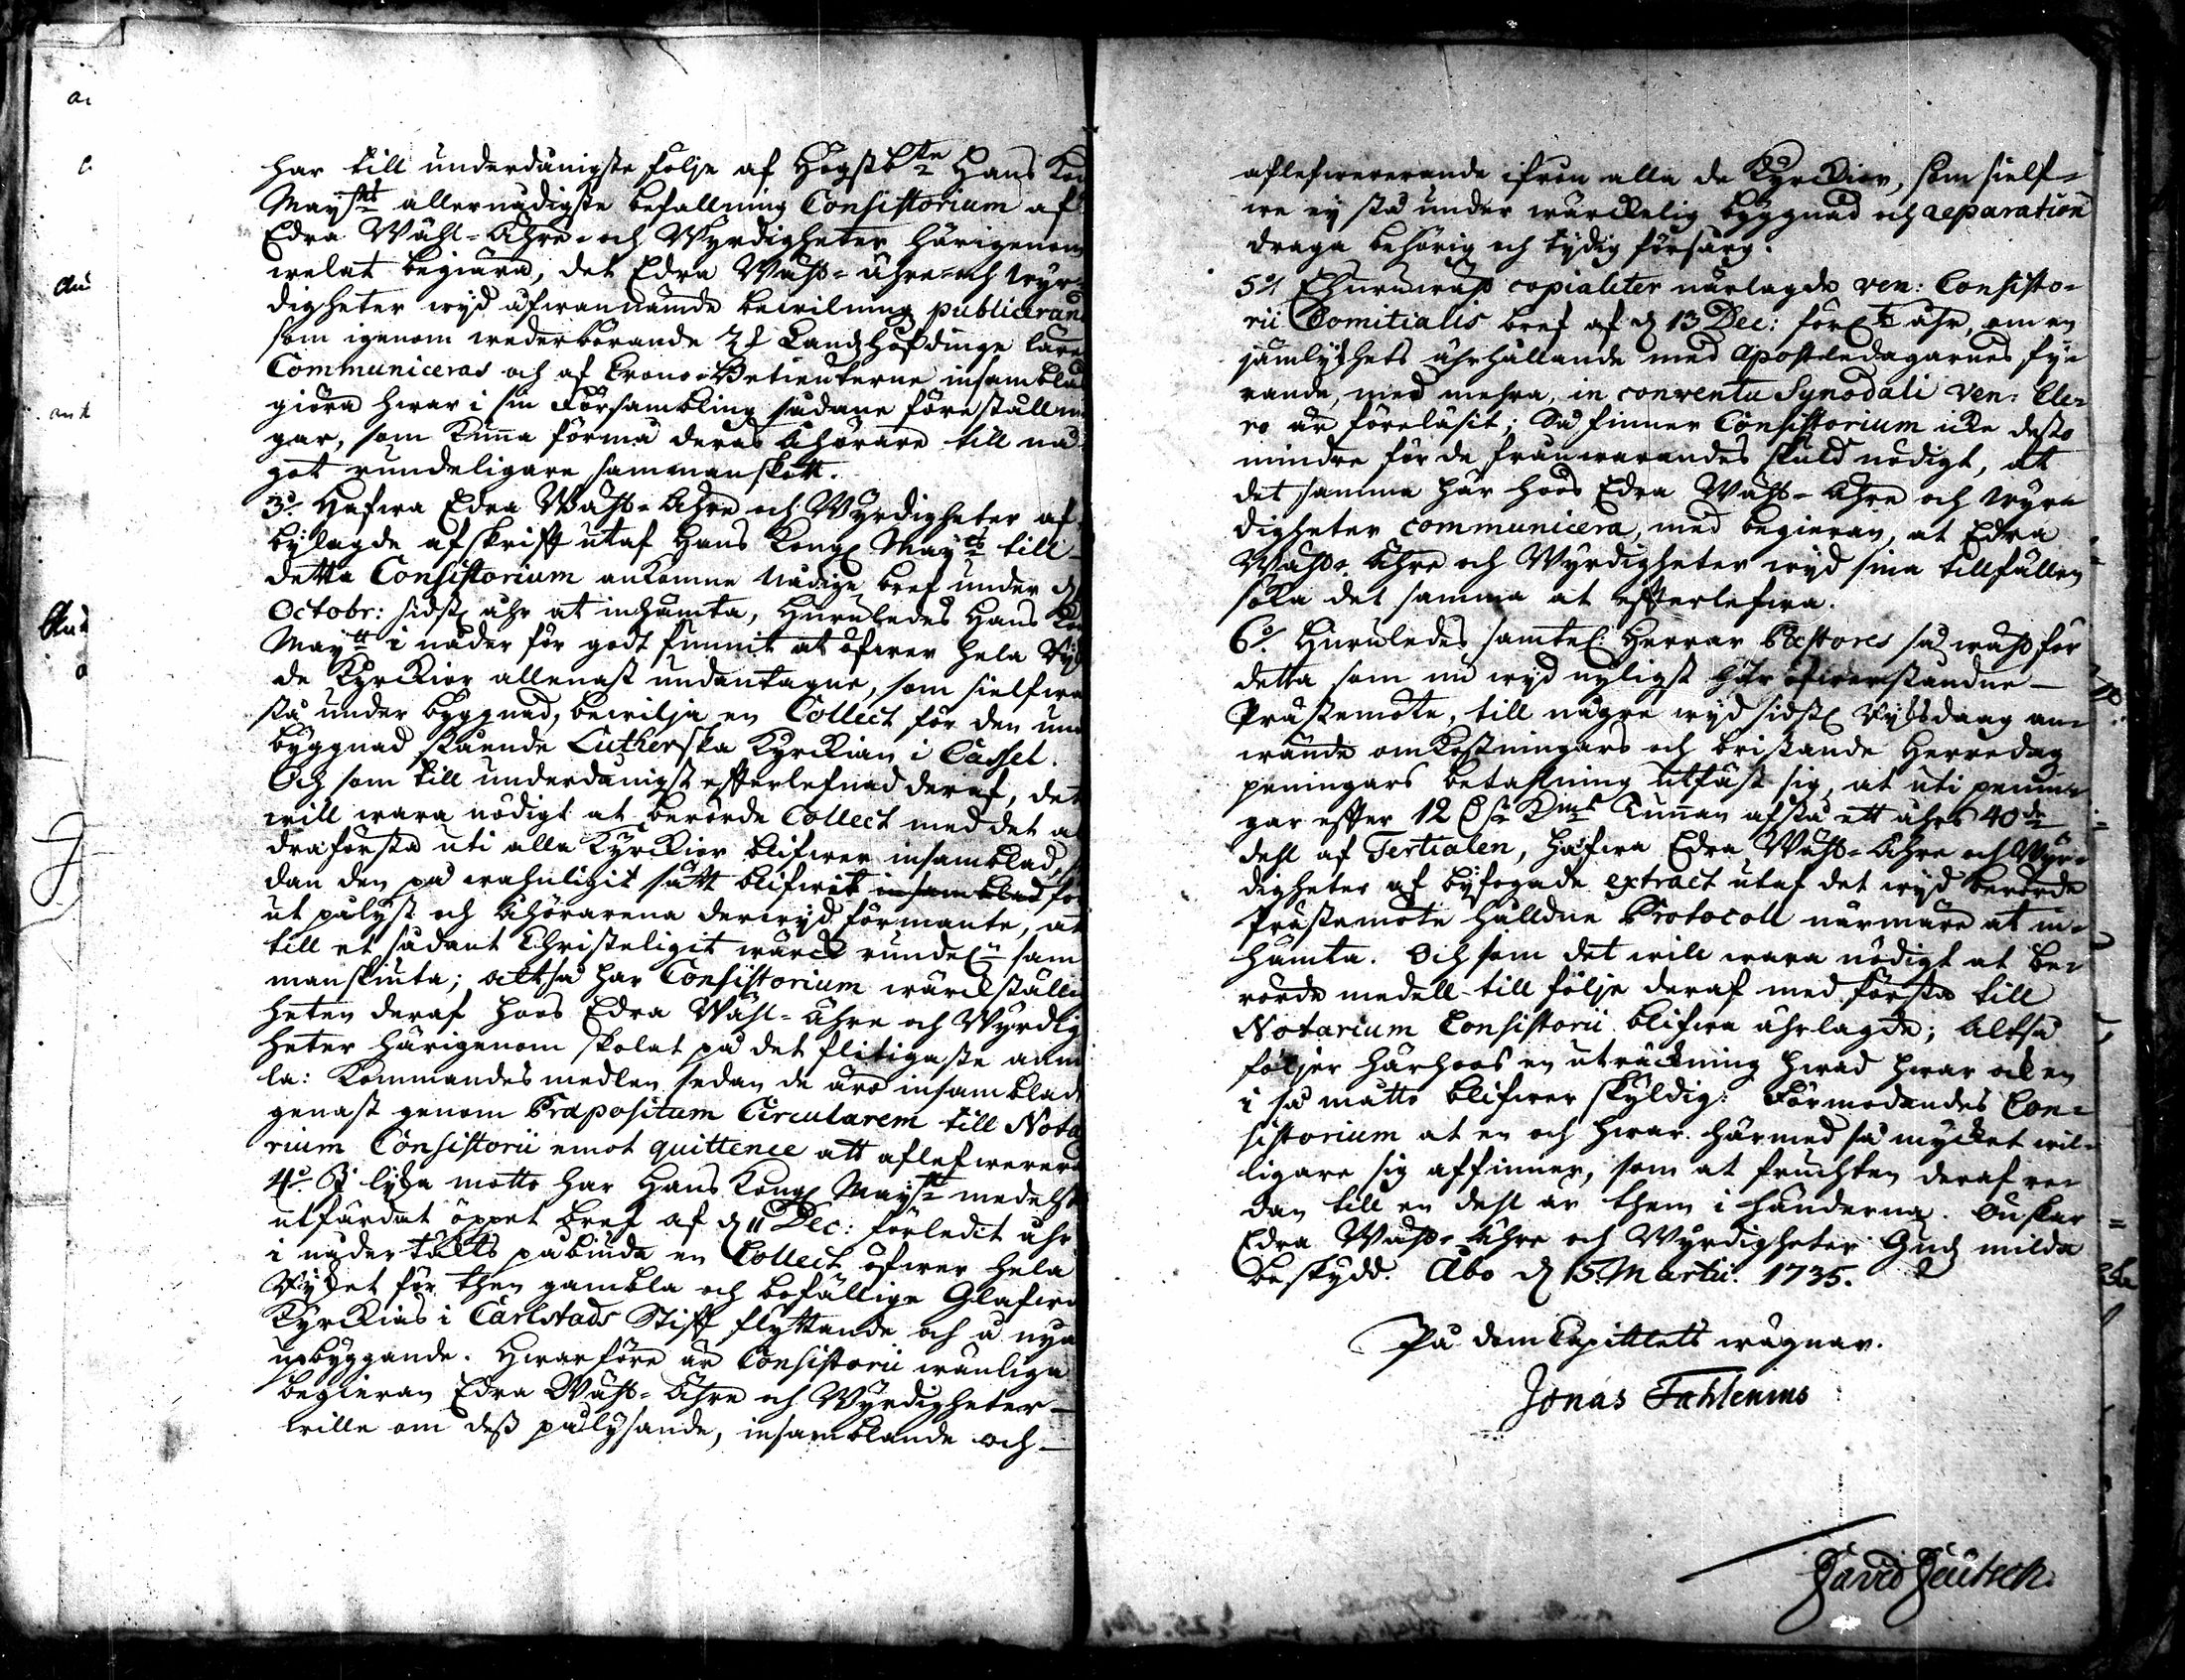 har till underdånigste följe af Högstb:te Hans
May:tts allernådigste befallning Consistorium af
Edra Wähl-Ähre- och Wyrdigheter härigenom
welat begiära, det Edra Wähl-ähre- och Wyr-
digheter wyd åfwannämde bewilning publicerand
som igenom wederbörande H:r Landzhöfdinge läre
Communiceras och af Crono-Betienterne insamblas
giöra hwar i sin Försambling sådane föreställnin
gar, som kunna förmå deras Åhörare till nå-
got rundeligare sammanskått.
3:o Hafwa Edra Wähl-Ähre och Wyrdigheter af
bylagde afskrifft utaf Hans Kongl May:tz till
detta Consistorium ankomne Nådige bref under d
Octobr: sidstl åhr at inhämta, huruledes Hans
May:tt i nåder för godt funnit at öfwer hela Ryk
de Kyrkior allenast undantagne, som sielfwa
stå under byggnad, bewilja en Collect för den und
byggnad stående Lutherska Kyrkian i Cassel.
Och som till underdånigst efterlefnad deraf, det
will wara nödigt at berörde Collect med det al
draförsta uti alla Kyrkior blifwer insamblad,
dan den på wahnligit sätt blifwit insamblad för
ut pålyst och Åhörarena derwyd förmante, at
till et sådant Christeligit wärck rundel:n sam
manskiuta; altså har Consistorium wärckställig
heten deraf hoos Edra Wähl-ähre och Wyrdig
heter härigenom skolat på det flitigaste anm
la: Kommandes medlen sedan de äro insamblade
genast genom Præpositum Circularem till Nota
rium Consistorii emot quittence att aflefwerera
4:o På lyka motto har Hans Kongl May:tt medelst
utfärdat öppet bref af d 11 Dec: förledit åhr
i nåder täckts påbiuda en Collect öfwer hela
Ryket för then gambla och bofällige Glafwa
Kyrkias i Carlstads Stifft flyttande och å nya
upbyggande. Hwarföre är Consistorii wänliga
begieran Edra Wähl-Ähre och Wyrdigheter
wille om dess pålysande, insamblande och
aflefwererande ifrån alla de Kyrckior, som sielf-
we ey stå under wärckelig byggnad och reparation
draga behörig och tydig försorg.
5:o Ehuruwähl copialiter närlagde ven: Consisto-
rii Comitialis bref af d 13 Dec: förl:e åhr, om en
jämlykhets åhrhållande med Apostledagarnes fy-
rande, med mehra, in conventu Synodali Ven: Cle-
ro är föreläsit; Så finner Consistorium icke desto
mindre för de frånwarandes skuld nödigt, at
det samma här hoos Edra Wähl-Ähre och Wyr-
digheter communicera, med begieran, at Edra
Wähl-Ähre och Wyrdigheter wyd sina tillfällen
söka det samma at efterlefwa.
6:o Huruledes samtel. Herrar Pastores så wähl för
detta som nu wyd nyligst här öfwerståndne
Prästemöte, till någre wyd sidstl Ryksdaag an-
wände omkostningars och bristande Herredag
peningars betahlning utfäst sig, at uti penin-
gar efter 12 Kunnan afstå ett åhrs 40:de
dehl af Tertialen, hafwa Edra Wähl-Ähre och Wyr-
digheter af byfogade extract utaf det wyd berörde
Prästemöte håldne Protocoll närmare at in-
hämta. Och som det will wara nödigt at be-
rörde medell till följe deraf med första till
Notarium Consistorii blifwa åhrlagde; Altså
följer härhoos en uträckning hwad hwar och en
i så måtto blifwer skyldig: Förmodandes Con-
sistorium at en och hwar härmed så mycket wil-
ligare sig affinner, som at fruchten deraf re-
dan till en dehl är them i händerna. Önskar
Edra Wähl-Ähre och Wyrdigheter Gudz milda
beskydd. Åbo d 15 Martii 1735.
På dom Capittlets wägnar.
Jonas Fahlenius
David Deutsch